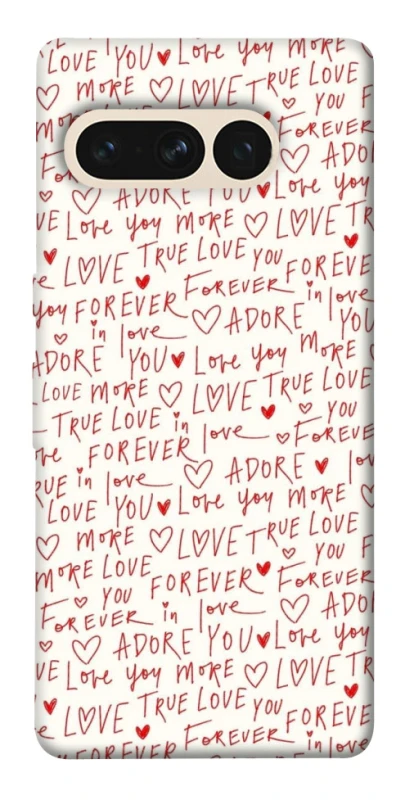 LOVE YOU♥Love you MORE
♡ MORE ♡ LOVE TRUE LOVE
YOU
FOREVER
♡ ADOR
♡ ADORE YOU♥Love you
Love you MORE ♡ LOVE TR
♡ LOVE TRUE LOVE YOU FOREVE
you FOREVER♥ FOREVER in love
in love ♡ ADORE YOU
ADORE YOU♥ Love you MORE
LOVE MORE ♡ LOVE TRUE LOVE
TRUE LOVE in love ♥ ♡ YOU
FOREVER ♡ FOREVE
in love ♡ ADORE ♥
LOVE YOU♥Love you MORE
♡ MORE ♡ LOVE TRUE LOVE
MORE LOVE ♡ YOU
♡ YOU FOREVER♥ FOREVER
FOREVER in love ♡ ADO
♡ ADORE YOU♥Love you
Love you MORE ♡ LOVE TR
♡ LOVE TRUE LOVE YOU FOREVE
FOREVER♥ FOREVER in love